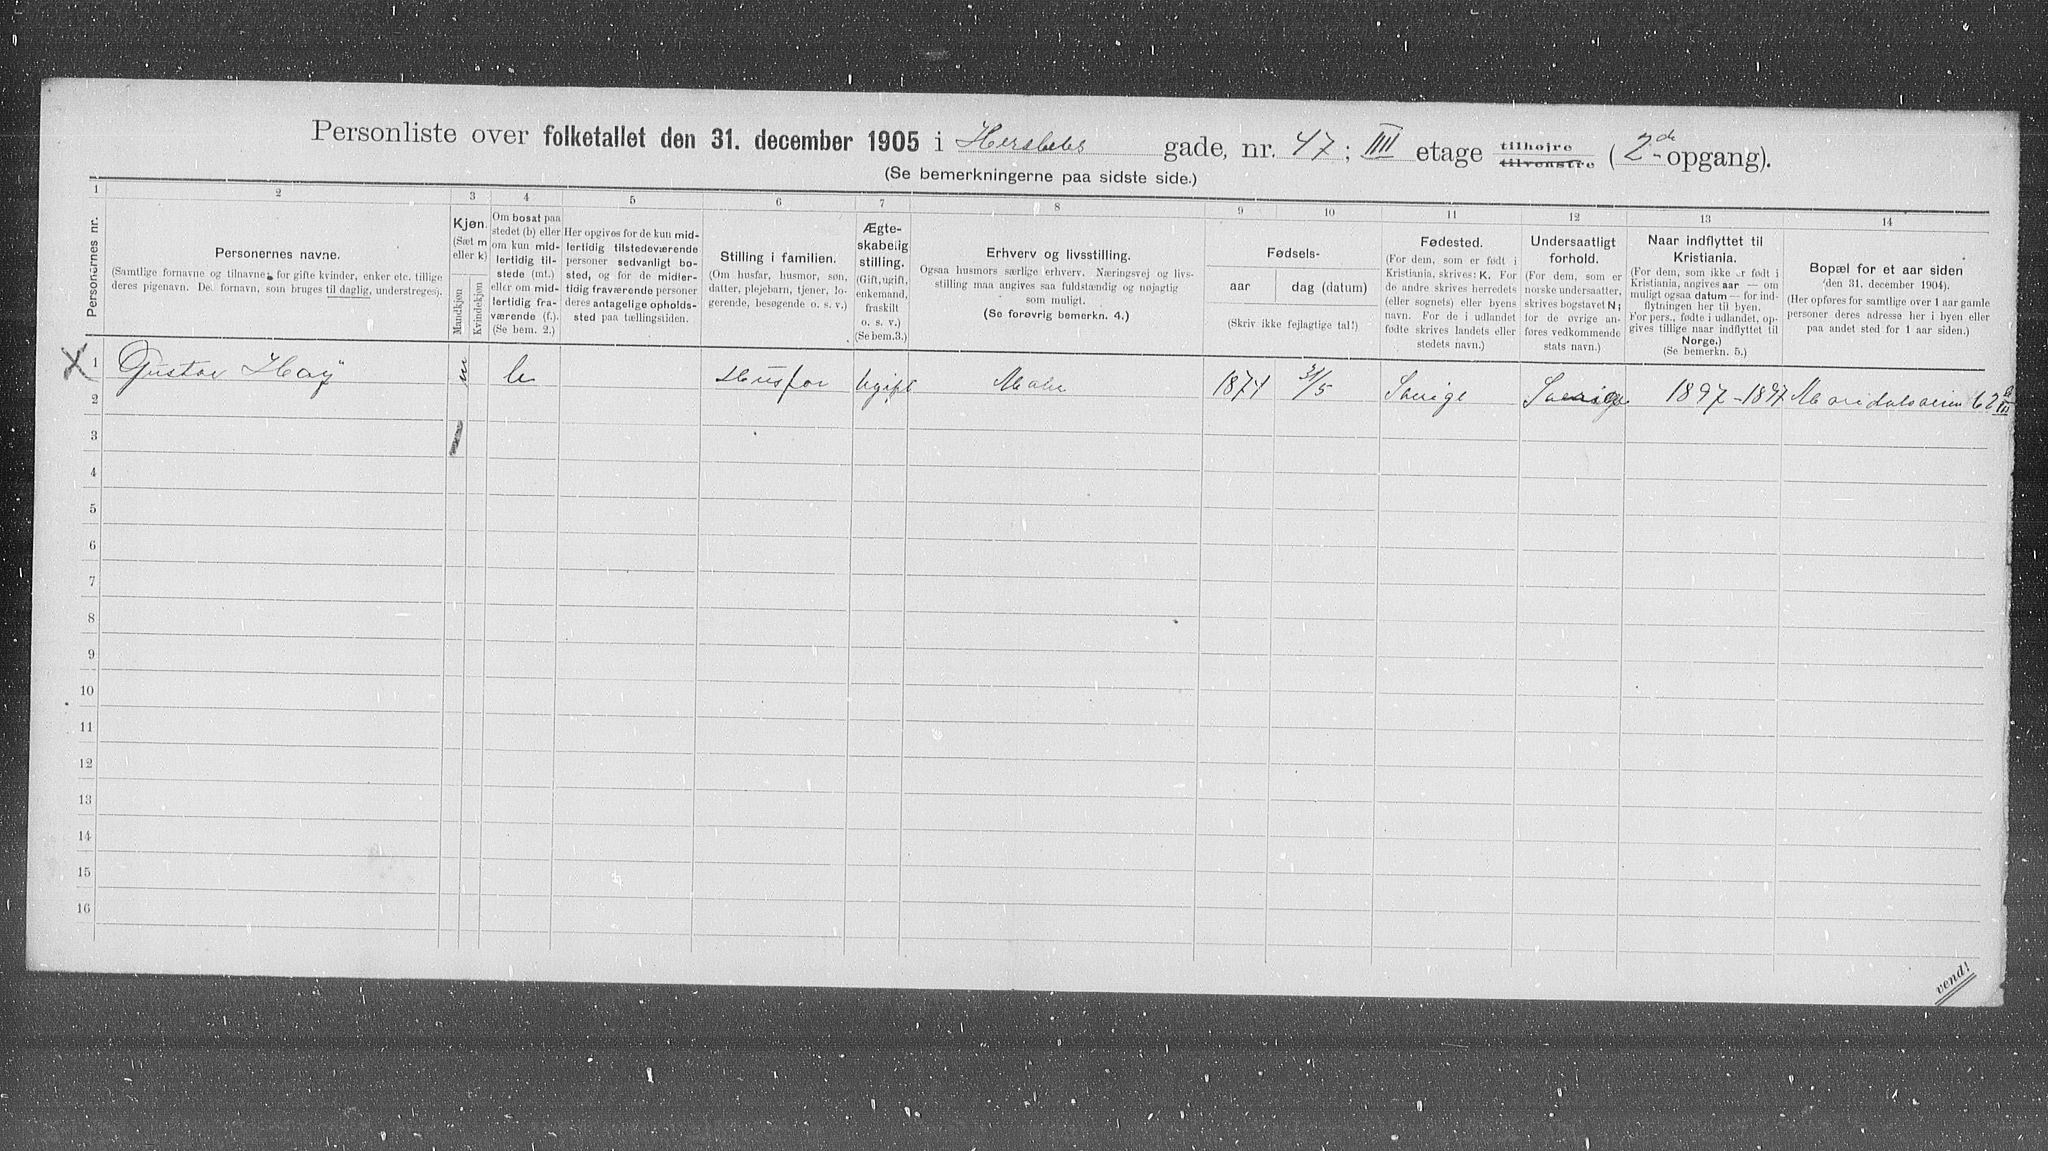 Personliste over folketallet den 31. december 1905 i Herslebs gade, nr. 47; III etage tilhøjre tilvenstre (2de opgang).
(Se bemerkningerne paa sidste side.)
1 2 3 4 5 6 7 8 9 10 11 12 13 14
Personernes nr.
Personernes navne.
(Samtlige fornavne og tilnavne; for gifte kvinder, enker etc. tillige deres pigenavn. Det fornavn, som bruges til daglig, understreges).
Kjøn.
(Sæt m eller k)
Mandkjøn
Kvindekjøn
Om bosat paa stedet (b) eller om kun midlertidig tilstede (mt.) eller om midlertidig fraværende (f.). (Se bem. 2.)
Her opgives for de kun midlertidig tilstedeværende personer sedvanligt bosted, og for de midlertidig fraværende personer deres antagelige opholdssted paa tællingstiden.
Stilling i familien.
(Om husfar, husmor, søn, datter, plejebarn, tjener, logerende, besøgende o. s. v.)
Ægteskabelig stilling.
(Gift, ugift, enkemand, fraskilt o. s. v.)
(Se bem.3.)
Erhverv og livsstilling.
Ogsaa husmors særlige erhverv. Næringsvej og livsstilling maa angives saa fuldstændig og nøjagtig som muligt.
(Se forøvrig bemerkn. 4.)
Fødsels-
aar
dag (datum)
(Skriv ikke fejlagtige tal!)
Fødested.
(For dem, som er født i Kristiania, skrives: K. For de andre skrives herredets (eller sognets) eller byens navn. For de i udlandet fødte skrives landets eller stedets navn.)
Undersaatligt forhold.
(For dem, som er norske undersaatter, skrives bogstavet N; for de øvrige anføres vedkommende stats navn.)
Naar indflyttet til Kristiania.
(For dem, som ikke er født i Kristiania, angives aar — om muligt ogsaa datum — for indflytningen her til byen. For pers., født i udlandet, opgives tillige naar indflyttet til Norge.)
(Se bemerkn. 5.)
Bopæl for et aar siden
(den 31. december 1904).
(Her opføres for samtlige over 1 aar gamle personer deres adresse her i byen eller paa andet sted for 1 aar siden.)
X 1 Gustav Hoy m b Husfar Ugift Maler 1874 31/5 Sverige Sverige 1897-1897 Maridalsveien 62 III
2
3
4
5
6
7
8
9
10
11
12
13
14
15
16
vend!